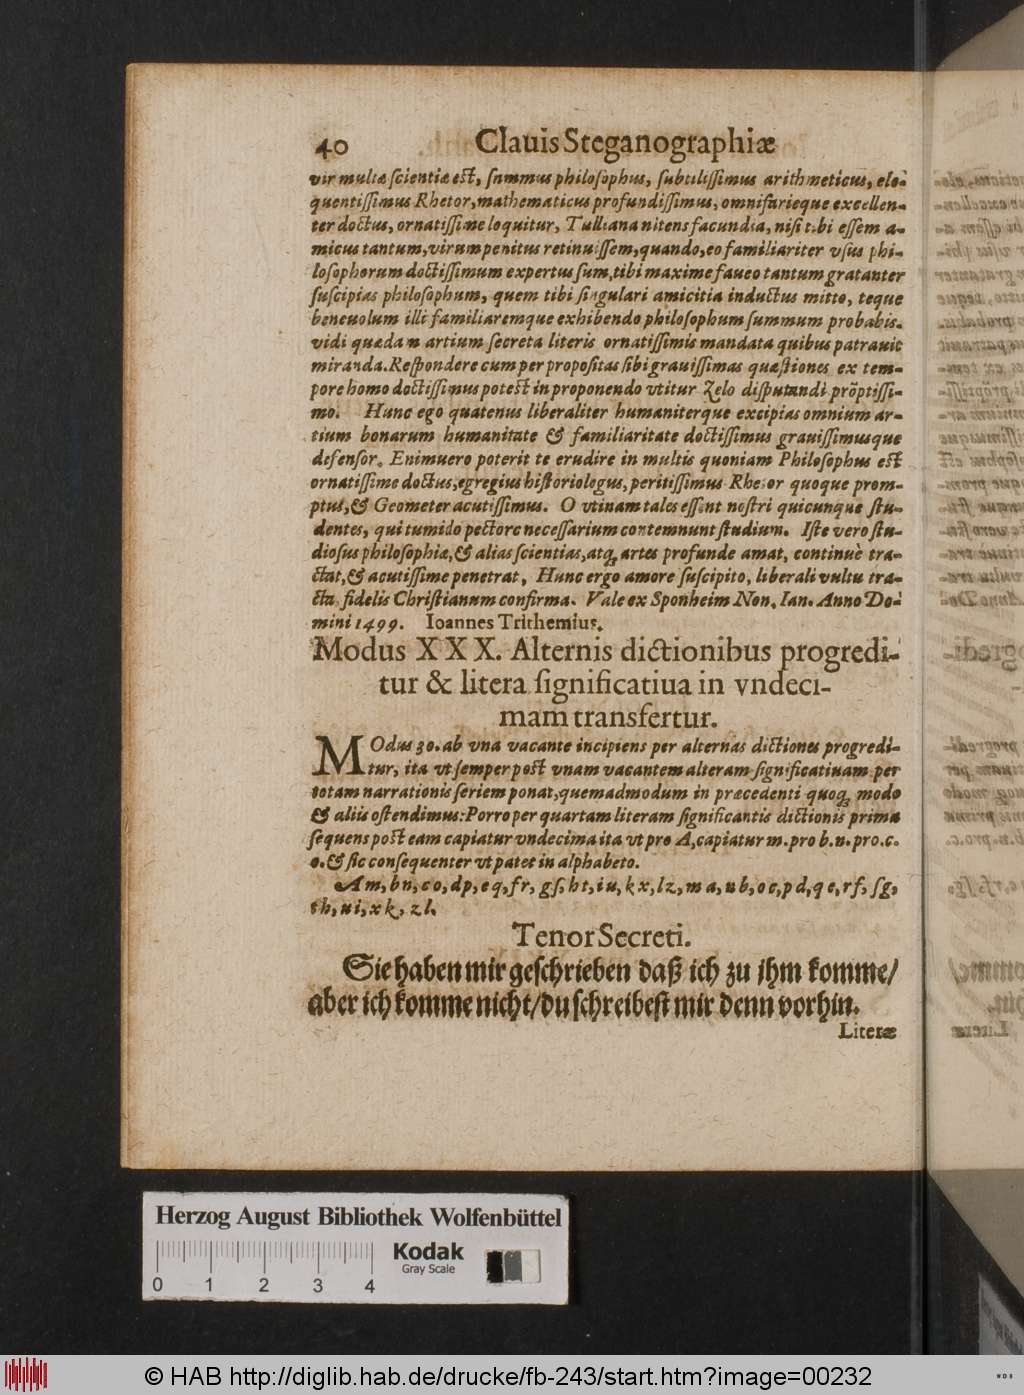 40 Clauis Steganographiæ
vir multæ scientiæ est, summus philosophus, subtilissimus arithmeticus, elo-
quentissimus Rhetor, mathematicus profundissimus, omnifarieque excellen-
ter doctus, ornatissime loquitur, Tulliana nitens facundia, nisi tibi essem a-
micus tantum, virum penitus retinuissem, quando, eo familiariter vsus phi-
losophorum doctissimum expertus sum, tibi maxime faueo tantum gratanter
suscipias philosophum, quem tibi singulari amicitia inductus mitto, teque
beneuolum illi familiaremque exhibendo philosophum summum probabis.
vidi quædam artium secreta literis ornatissimis mandata quibus patrauit
miranda. Respondere cum per propositas sibi grauissimas quæstiones ex tem-
pore homo doctissimus potest in proponendo vtitur Zelo disputandi prōptissi-
mo. Hunc ego quatenus liberaliter humaniterque excipias omnium ar-
tium bonarum humanitate & familiaritate doctissimus grauissimusque
defensor. Enimuero poterit te erudire in multis quoniam Philosophus est
ornatissime doctus, egregius historiologus, peritissimus Rhetor quoque prom-
ptus, & Geometer acutissimus. O vtinam tales essent nostri quicunque stu-
dentes, qui tumido pectore necessarium contemnunt studium. Iste vero stu-
diosus philosophiæ, & alias scientias, atq; artes profunde amat, continuè tra-
ctat, & acutissime penetrat, Hunc ergo amore suscipito, liberali vultu tra-
cta, fidelis Christianum confirma. Vale ex Sponheim Non. Ian. Anno Do-
mini 1499. Ioannes Trithemius.
Modus XXX. Alternis dictionibus progredi-
tur & litera significatiua in vndeci-
mam transfertur.
MOdus 30. ab vna vacante incipiens per alternas dictiones progredi-
tur, ita vt semper post vnam vacantem alteram significatiuam per
totam narrationis seriem ponat, quemadmodum in præcedenti quoq; modo
& aliis ostendimus: Porro per quartam literam significantis dictionis prima
sequens post eam capiatur vndecima ita vt pro A, capiatur m. pro b. n. pro. c.
o. & sic consequenter vt patet in alphabeto.
Am, bn, co, dp, eq, fr, gs, ht, iu, kx, lz, ma, nb, oc, pd, qe, rf, sg,
th, ui, xk, zl.
Tenor Secreti.
Sie haben mir geschrieben daß ich zu jhm komme/
aber ich komme nicht/ du schreibest mir denn vorhin.
Literæ
Herzog August Bibliothek Wolfenbüttel
Kodak
Gray Scale
0 1 2 3 4
© HAB http://diglib.hab.de/drucke/fb-243/start.htm?image=00232